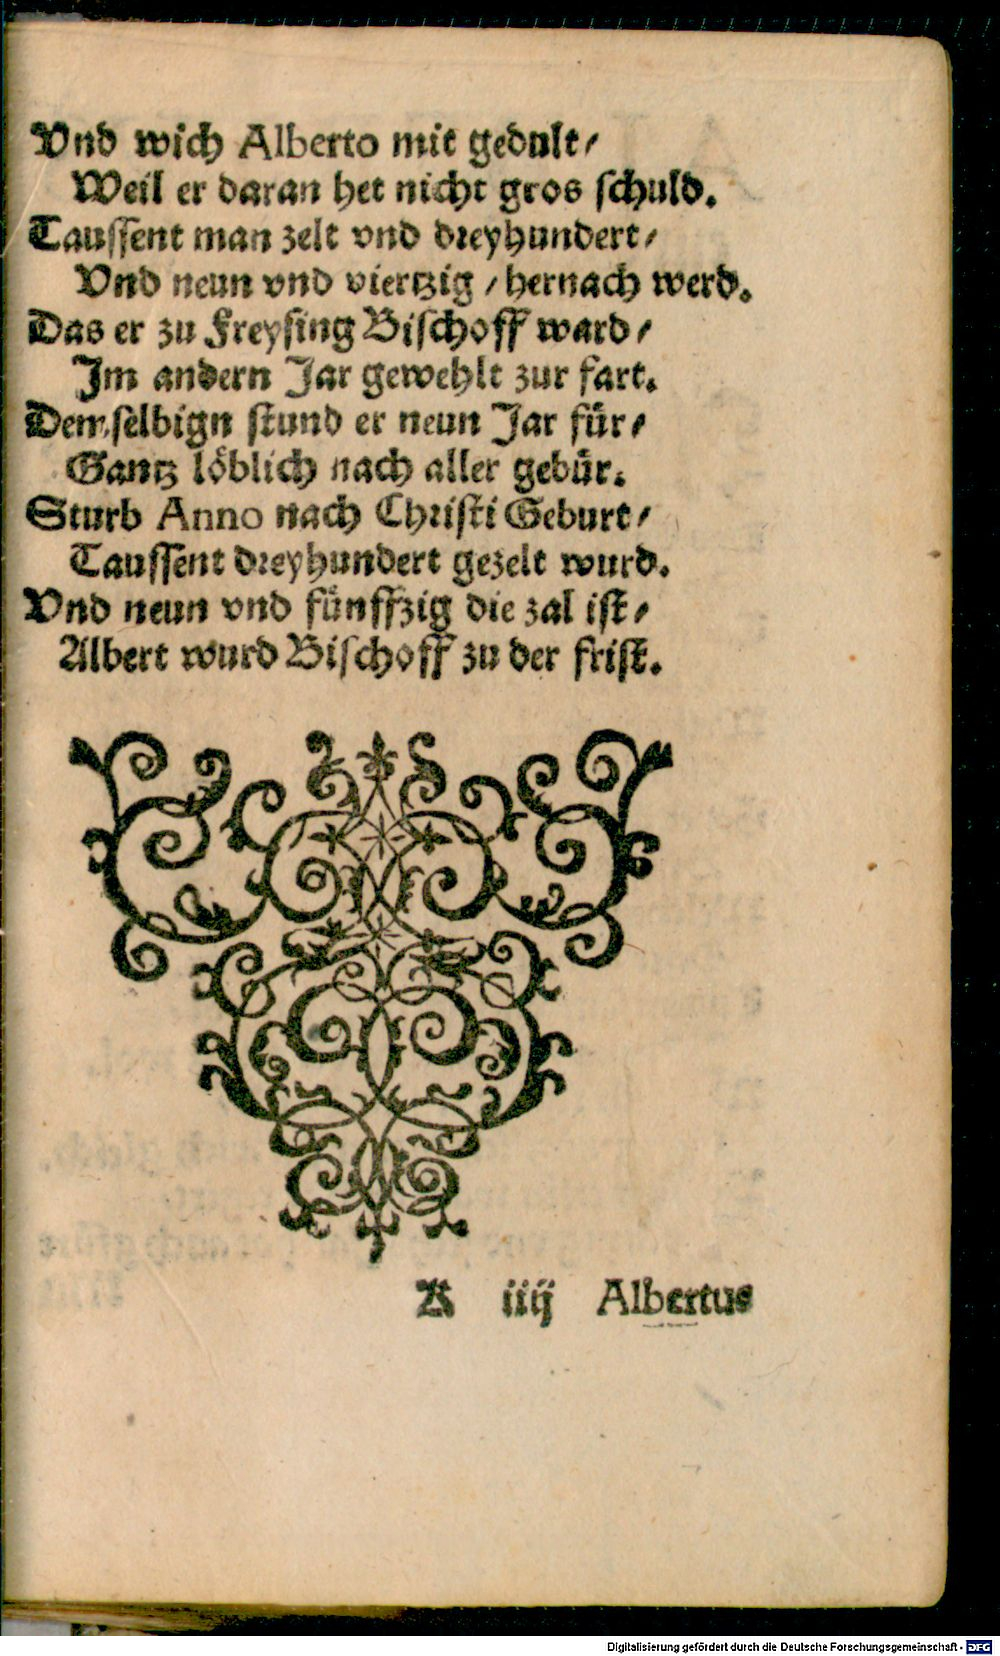 Vnd wich Alberto mit gedult/
Weil er daran het nicht gros schuld.
Taussent man zelt vnd dreyhundert/
Vnd neun vnd viertzig / hernach werd.
Das er zu Freysing Bischoff ward/
Im andern Jar gewehlt zur fart.
Demselbign stund er neun Jar für/
Gantz löblich nach aller gebür.
Sturb Anno nach Christi Geburt/
Taussent dreyhundert gezelt wurd.
Vnd neun vnd fünffzig die zal ist/
Albert wurd Bischoff zu der frist.
A iiij Albertus
Digitalisierung gefördert durch die Deutsche Forschungsgemeinschaft - DFG